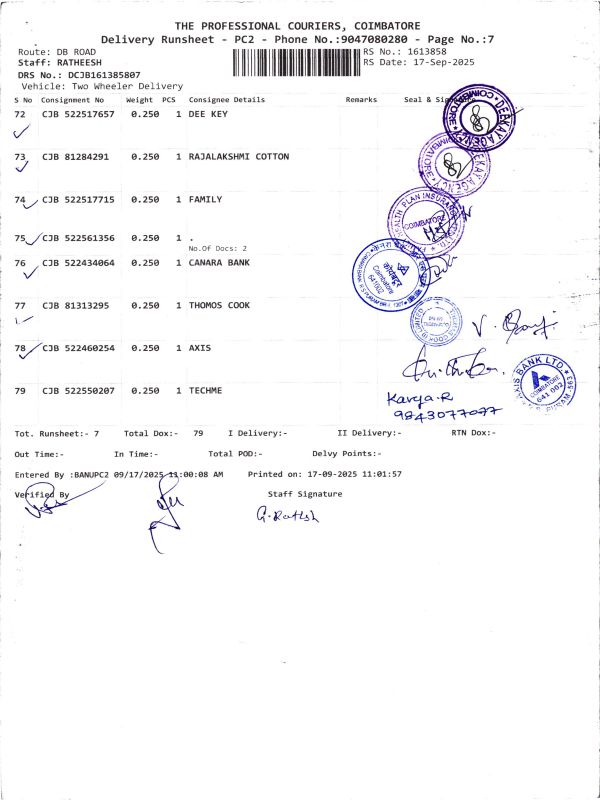 THE PROFESSIONAL COURIERS, COIMBATORE
Delivery Runsheet - PC2 - Phone No.:9047080280 - Page No.:7
Route: DB ROAD
RS No.: 1613858
Staff: RATHEESH
RS Date: 17-Sep-2025
DRS No.: DCJB161385807
Vehicle: Two Wheeler Delivery
S No Consignment No Weight PCS Consignee Details Remarks Seal & Signature
72 CJB 522517657 0.250 1 DEE KEY
DEEKAY AGENCY COIMBATORE
73 CJB 81284291 0.250 1 RAJALAKSHMI COTTON
DEEKAY AGENCY COIMBATORE
74 CJB 522517715 0.250 1 FAMILY
FAMILY HEALTH PLAN INSURANCE COIMBATORE
75 CJB 522561356 0.250 1 .
No.Of Docs: 2
76 CJB 522434064 0.250 1 CANARA BANK
कोयंबतूर
Coimbatore
641002
77 CJB 81313295 0.250 1 THOMOS COOK
78 CJB 522460254 0.250 1 AXIS
AXIS BANK LTD.
COIMBATORE
641 002
79 CJB 522550207 0.250 1 TECHME
Karya.R
9843077077
Tot. Runsheet:- 7 Total Dox:- 79 I Delivery:- II Delivery:- RTN Dox:-
Out Time:- In Time:- Total POD:- Delvy Points:-
Entered By :BANUPC2 09/17/2025 11:00:08 AM Printed on: 17-09-2025 11:01:57
Verified By Staff Signature
G. Ratish